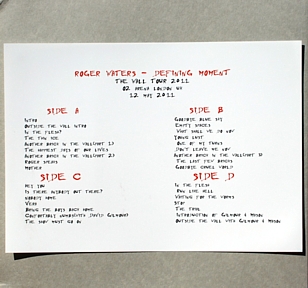 ROGER WATERS - DEFINING MOMENT
THE WALL TOUR 2011
O2 ARENA LONDON UK
12 MAY 2011
SIDE A
INTRO
OUTSIDE THE WALL INTRO
IN THE FLESH?
THE THIN ICE
ANOTHER BRICK IN THE WALL(PART 1)
THE HAPPIEST DAYS OF OUR LIVES
ANOTHER BRICK IN THE WALL(PART 2)
ROGER SPEAKS
MOTHER
SIDE B
GOODBYE BLUE SKY
EMPTY SPACES
WHAT SHALL WE DO NOW?
YOUNG LUST
ONE OF MY TURNS
DON'T LEAVE ME NOW
ANOTHER BRICK IN THE WALL(PART 3)
THE LAST FEW BRICKS
GOODBYE CRUEL WORLD
SIDE C
HEY YOU
IS THERE ANYBODY OUT THERE?
NOBODY HOME
VERA
BRING THE BOYS BACK HOME
COMFORTABLY NUMB(WITH DAVID GILMOUR)
THE SHOW MUST GO ON
SIDE D
IN THE FLESH
RUN LIKE HELL
WAITING FOR THE WORMS
STOP
THE TRIAL
INTRODUCTION OF GILMOUR & MASON
OUTSIDE THE WALL WITH GILMOUR & MASON